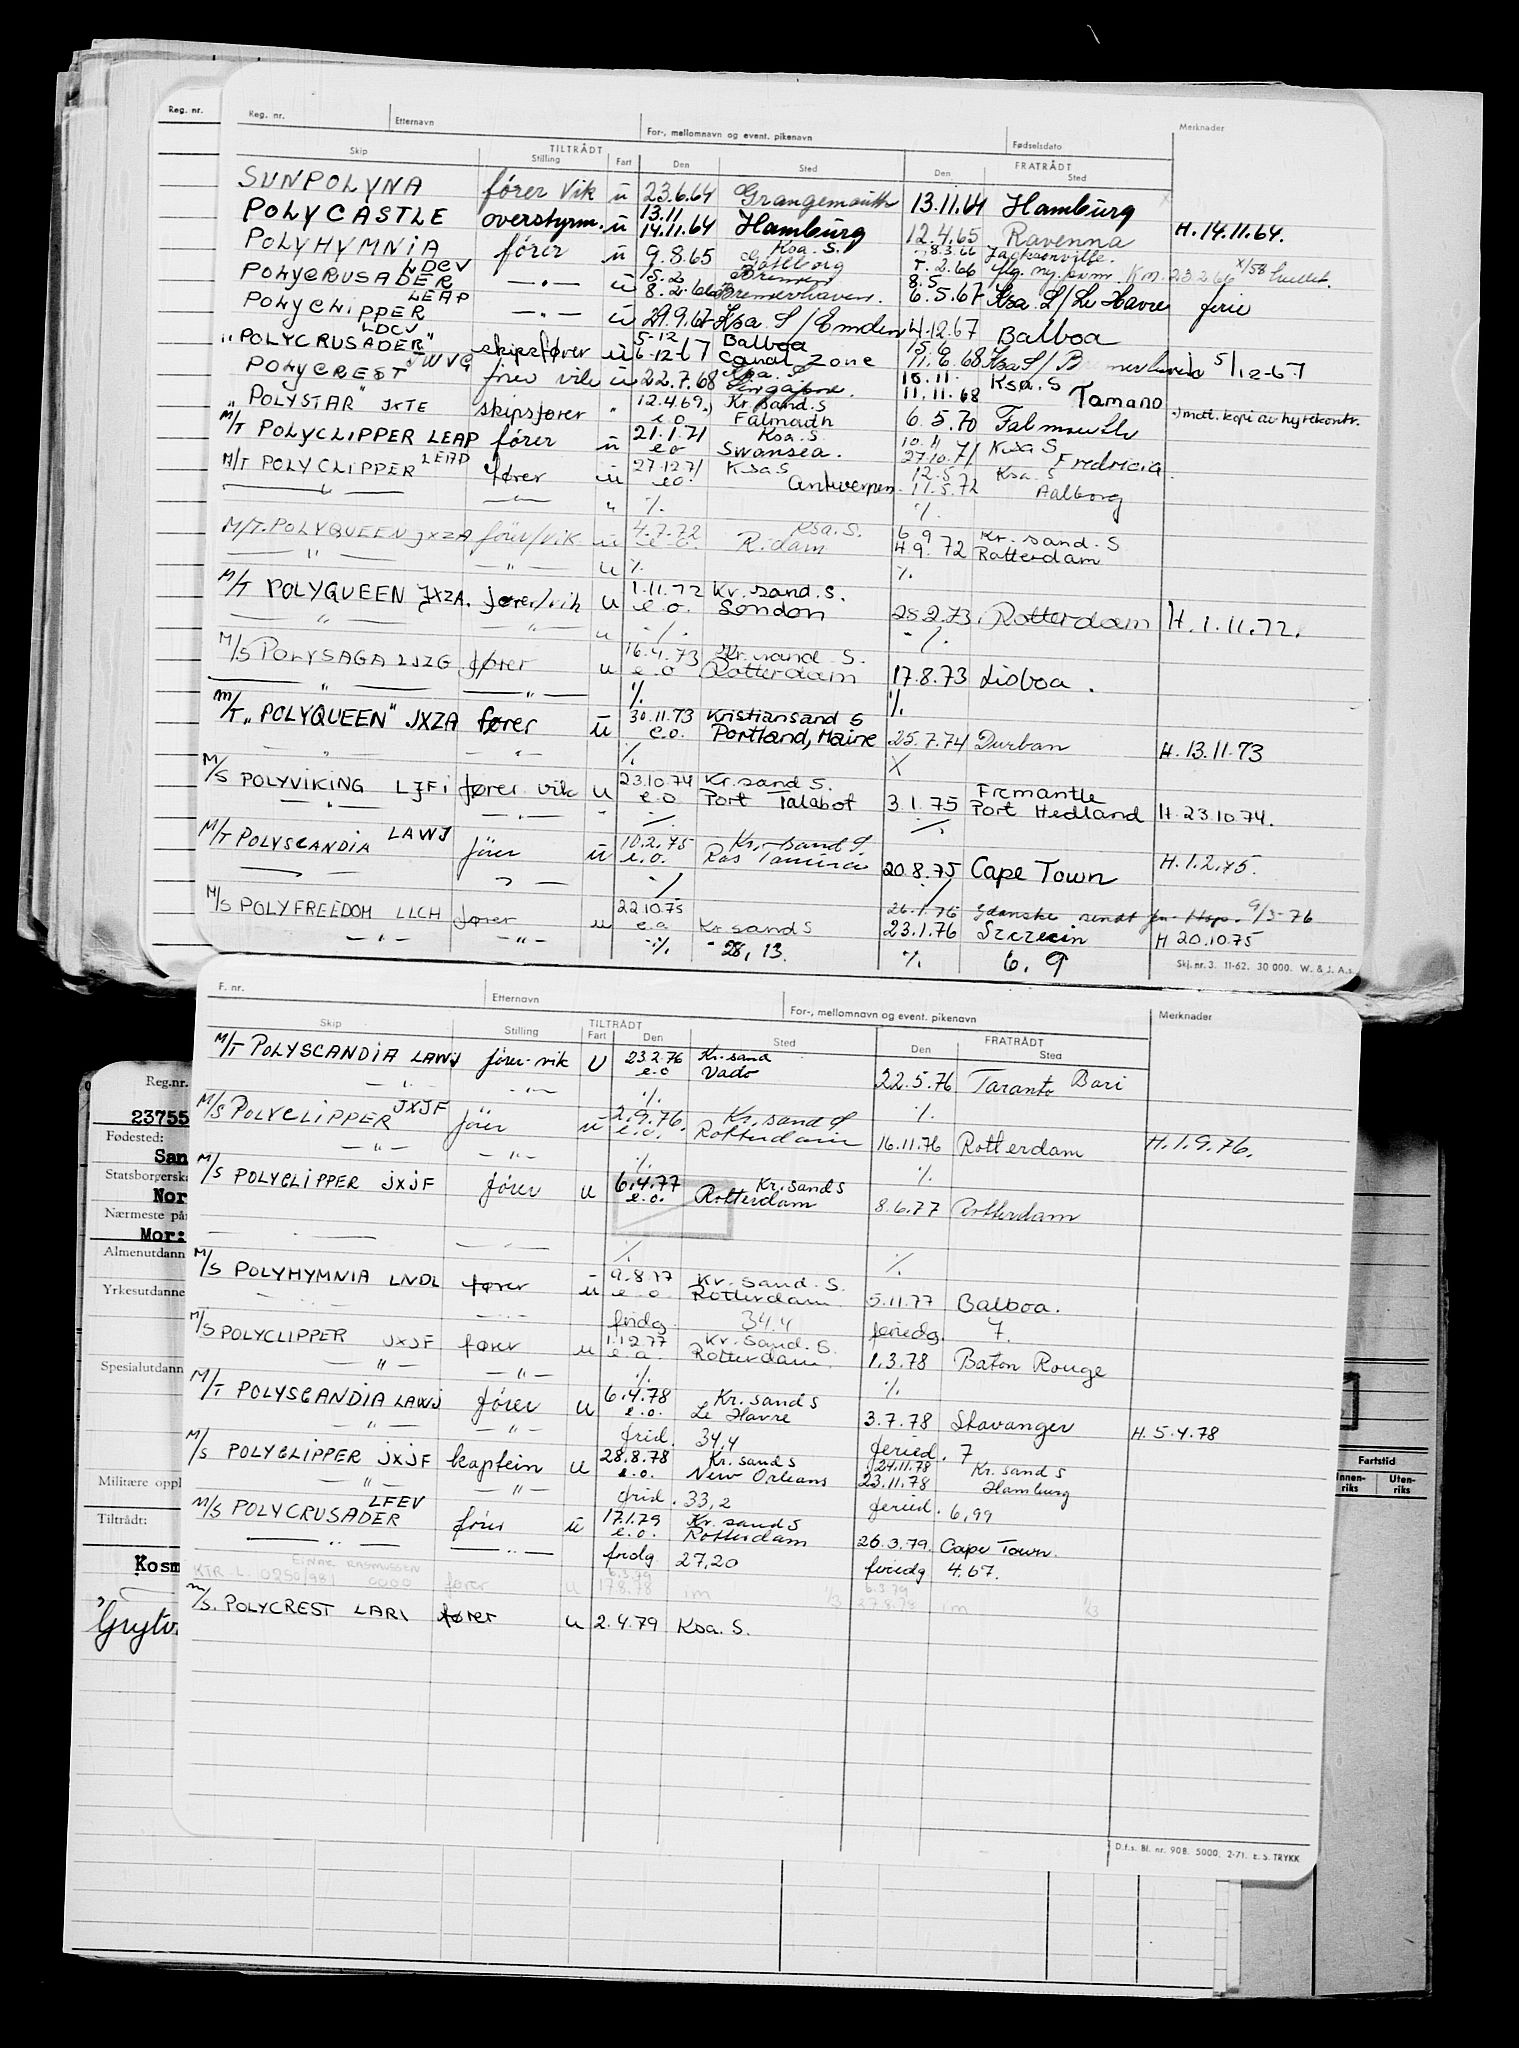 Reg. nr.
Reg. nr. Etternavn For-, mellomnavn og event. pikenavn Fødselsdato Merknader
TILTRÅDT FRATRÅDT
Skip Stilling Fart Den Sted Den Sted
SUNPOLYNA fører vik u 23.6.64 Grangemouth 13.11.64 Hamburg
POLYCASTLE overstyrm. u 13.11 14.11.64 Hamburg 12.4.65 Ravenna H. 14.11.64.
POLYHYMNIA fører u 9.8.65 Ksa. S. Gøteborg 8.3.66 Jacksonville.
POLYCRUSADER LDCV —"— u 15.2 8.2.66 Bremen Bremerhaven. 8.5 6.5.67 Ksa S/Le Havre ferie
POLYCLIPPER LEAP —"— u 29.9.67 Ksa S/Emden 4.12.67 Balboa
"POLYCRUSADER" LDCV skipsfører u 5-12 6-12-67 Balboa Canal Zone 15.6 11.6.68 Ksa S/ 5/12-67
POLYCREST JWVG fører vik u 22.7.68 Ksa. S Singapore. 16.11. 11.11.68 Ksa. S Tomano
"POLYSTAR" JXTE skipsfører " 12.4.69.) e.o. Kr. sand. S Falmouth 6.5.70 Falmouth .) mott. kopi av hyrekontr.
M/T POLYCLIPPER LEAP fører u 21.1.71 e.o Ksa. S. Swansea. 10.11 27.10.71 Ksa S Fredricia
M/T POLYCLIPPER LEAP fører u 27.12.71 e.o. Ksa S Antwerpen. 12.5 11.5.72 Ksa. S Aalborg
—"— —"— " ./. ./.
M/T. POLYQUEEN JXZA fører/vik u 4.7.72 e.o. Ksa. S. R.dam 6.9 4.9.72 Kr. sand. S Rotterdam
—"— —"— u ./. ./.
M/T POLYQUEEN JXZA. fører/vik u 1.11.72 e.o. Kr. sand. S. London 28.2.73. Rotterdam H. 1.11.72.
—"— —"— u ./. ./.
M/S POLYSAGA LJZG fører u 16.4.73 e.o Kr. sand S. Rotterdam 17.8.73 Lisboa.
—"— —"— ./. ./.
M/T "POLYQUEEN" JXZA fører u 30.11.73 e.o. Kristiansand S Portland, Maine 25.7.74 Durban H. 13.11.73
—"— —"— ./. X
M/S POLYVIKING LJFI fører vik u 23.10.74 e.o Kr. sand S. Port Talabot 3.1.75 Fremantle Port Hedland H. 23.10.74.
—"— —"— " ./. ./.
M/T POLYSCANDIA LAWJ fører u 10.2.75 e.o. Kr. sand S Ras Tanura 20.8.75 Cape Town H. 1.2.75.
—"— ./. ./.
M/S POLYFREEDOM LLCH fører u 22.10.75 e.o Kr sand S 26.1.76 23.1.76 Gdanske Szczecin 9/3-76 H 20.10.75
—"— —"— ./. 28,13. ./. 6,9
Skj. nr. 3. 11-62. 30 000. W. & J. A.s.
F. nr. Etternavn For-, mellomnavn og event. pikenavn Merknader
TILTRÅDT FRATRÅDT
Skip Stilling Fart Den Sted Den Sted
M/T POLYSCANDIA LAWJ fører-vik U 23.2.76 e.o Kr. sand Vado 22.5.76 Taranto Bari
—"— —"— ./. ./.
M/S POLYCLIPPER JXJF fører u 2.9.76. e.o. Kr. sand S Rotterdam 16.11.76 Rotterdam H. 1.9.76.
—"— —"— ./. ./.
M/S POLYCLIPPER JXJF fører u 6.4.77 e.o. Kr. sand S Rotterdam 8.6.77 Rotterdam
—"— ./. ./.
M/S POLYHYMNIA LNDL fører u 9.8.77 e.o. Kr. sand. S. Rotterdam 5.11.77 Balboa.
—"— fridg. 34.4 feriedg. 7.
M/S POLYCLIPPER JXJF fører u 1.12.77 e.o. Kr. sand. S. Rotterdam. 1.3.78 Baton Rouge
—"— —"— ./. ./.
M/T POLYSCANDIA LAWJ fører u 6.4.78 e.o. Kr. sand S Le Havre 3.7.78 Stavanger H. 5.4.78
—"— —"— frid. 34,4 feried. 7
M/S POLYCLIPPER JXJF kaptein u 28.8.78 e.o. Kr. sand S New Orleans 24.11.78 23.11.78 Kr. sand S Hamburg
—"— —"— frid. 33,2 feried. 6,99
M/S POLYCRUSADER LFEV fører u 17.1.79 e.o. Kr. sand S Rotterdam 26.3.79. Cape Town.
—"— —"— fridg 27,20 feriedg 4.67.
EINAR RASMUSSEN
KTR. L. 0250/981 0000 fører u 6.3.79 17.8.78 im 1/3 6.3.79 27.8.78 im 1/3
M/S. POLYCREST LARI fører u 2.4.79 Ksa. S.
D.f.s. Bl. nr. 908. 5000. 2-71. E. S. TRYKK
Reg.nr.
23755
Fødested:
San
Statsborgerska
Nor
Nærmeste på
Mor:
Almenutdann
Yrkesutdanne
Spesialutdann
Militære oppl
Tiltrådt:
Kosm
Grytv.
Fartstid
Innen-riks Uten-riks